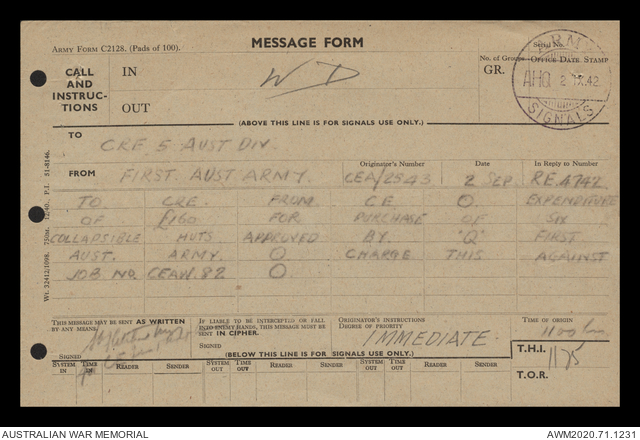 MESSAGE FORM
ARMY FORM C2128. (Pads of 100).
Serial No.
CALL AND INSTRUCTIONS
IN
OUT
WD
No. of Groups
GR.
OFFICE DATE STAMP
ARMY
AHQ 2 IX.42
SIGNALS
(ABOVE THIS LINE IS FOR SIGNALS USE ONLY.)
TO CRE 5 AUST DIV.
Originator's Number Date In Reply to Number
FROM FIRST AUST ARMY. CEA/2543 2 SEP. RE.4742
TO CRE. FROM C.E. O. EXPENDITURE
OF £160 FOR PURCHASE OF SIX
COLLAPSIBLE HUTS APPROVED BY "Q" FIRST
AUST. ARMY. O CHARGE THIS AGAINST
JOB No CEAW.82 O.
Wt. 32412/1098. 750m. 12/40. P.I. 51-8146.
THIS MESSAGE MAY BE SENT AS WRITTEN BY ANY MEANS.
SIGNED
IF LIABLE TO BE INTERCEPTED OR FALL INTO ENEMY HANDS, THIS MESSAGE MUST BE SENT IN CIPHER.
SIGNED
ORIGINATOR'S INSTRUCTIONS
DEGREE OF PRIORITY
IMMEDIATE.
TIME OF ORIGIN
1100 hrs.
(BELOW THIS LINE IS FOR SIGNALS USE ONLY.)
T.H.I. 1125
T.O.R.
SYSTEM IN TIME IN READER SENDER SYSTEM OUT TIME OUT READER SENDER SYSTEM OUT TIME OUT READER SENDER
AUSTRALIAN WAR MEMORIAL
AWM2020.71.1231